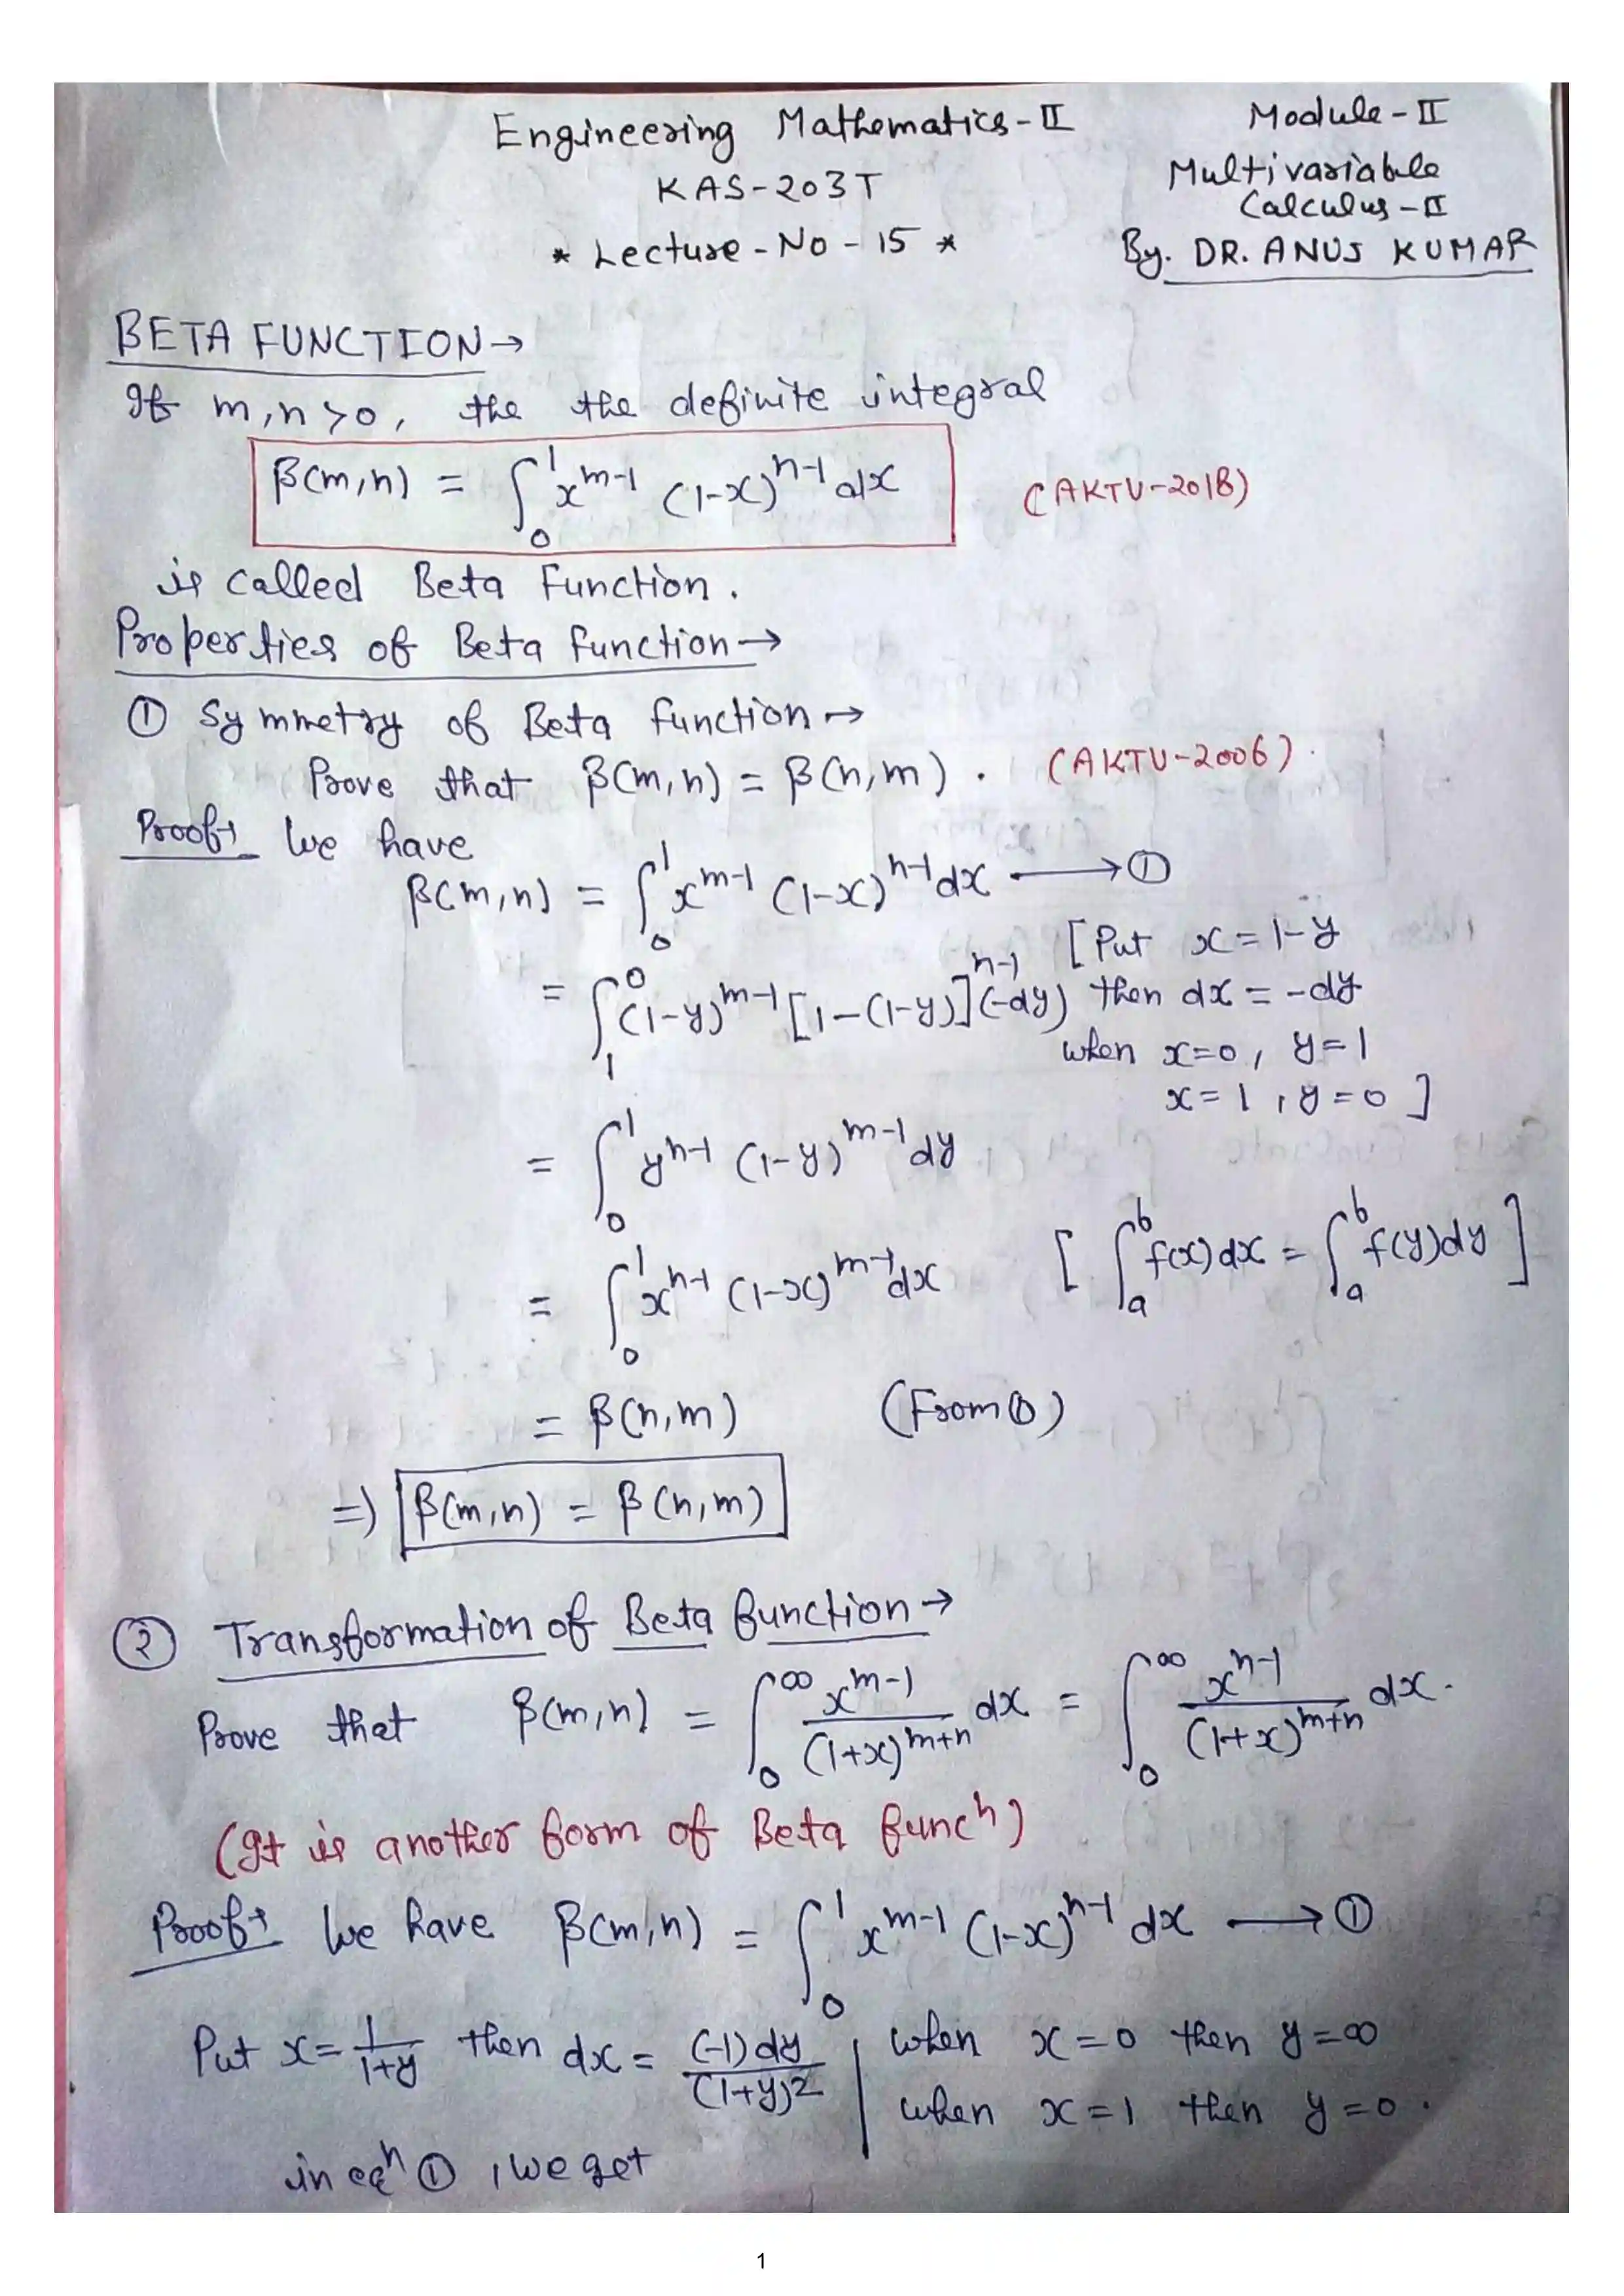 Engineering Mathematics-II
KAS-203T
* Lecture-No-15 *
Module-II
Multivariable
Calculus-II
By. DR. ANUJ KUMAR
BETA FUNCTION→
If m,n>0, the the definite integral
β(m,n) = ∫₀¹ x^(m-1) (1-x)^(n-1) dx (AKTU-2018)
is called Beta Function.
Properties of Beta function→
① Symmetry of Beta function→
Prove that β(m,n) = β(n,m). (AKTU-2006).
Proof→ We have
β(m,n) = ∫₀¹ x^(m-1) (1-x)^(n-1) dx ⟶ ①
= ∫₁⁰ (1-y)^(m-1) [1-(1-y)]^(n-1) (-dy) [Put x=1-y
then dx = -dy
when x=0, y=1
x=1, y=0]
= ∫₀¹ y^(n-1) (1-y)^(m-1) dy
= ∫₀¹ x^(n-1) (1-x)^(m-1) dx [∫ₐᵇ f(x)dx = ∫ₐᵇ f(y)dy]
= β(n,m) (From ①)
⇒ β(m,n) = β(n,m)
② Transformation of Beta function→
Prove that β(m,n) = ∫₀^∞ x^(m-1)/(1+x)^(m+n) dx = ∫₀^∞ x^(n-1)/(1+x)^(m+n) dx.
(It is another form of Beta funcⁿ)
Proof→ We have β(m,n) = ∫₀¹ x^(m-1) (1-x)^(n-1) dx ⟶ ①
Put x = 1/(1+y) then dx = (-1)dy/(1+y)² | when x=0 then y=∞
when x=1 then y=0.
in eqⁿ ①, we get
1